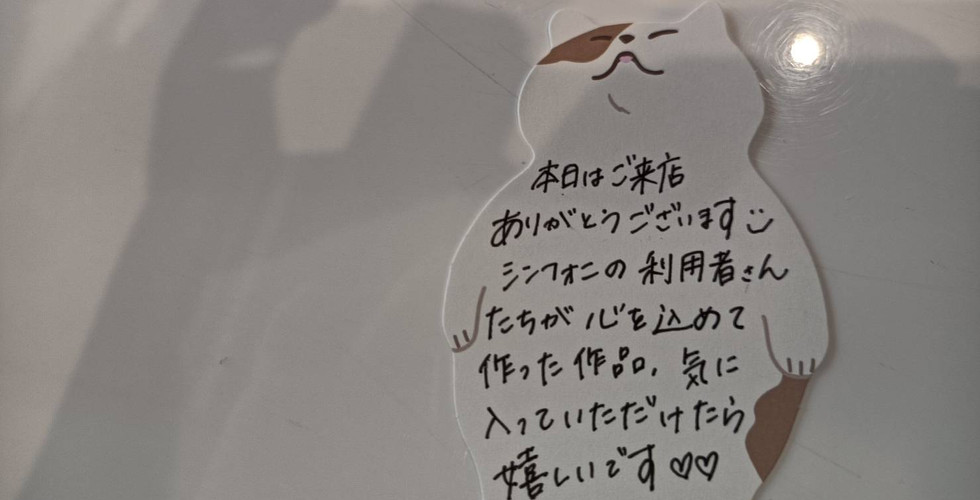 本日はご来店
ありがとうございます
シンフォニの利用者さん
たちが心を込めて
作った作品、気に
入っていただけたら
嬉しいです♡♡